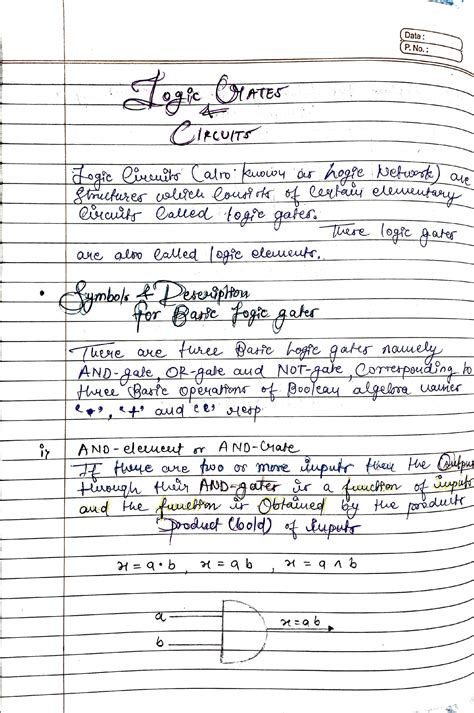 Date :
P. No. :
Logic Gates
&
Circuits
Logic Circuits (also known as Logic Network) are
structures which consists of certain elementary
circuits called logic gates.
These logic gates
are also called logic elements.
• Symbols & Description
for Basic Logic gates
There are three Basic Logic gates namely
AND-gate, OR-gate and NOT-gate, Corresponding to
three Basic operations of Boolean algebra
'•', '+' and resp.
i) AND-element or AND-Gate
If there are two or more inputs then the Output
through their AND-gates is a function of inputs
and the function is Obtained by the products
product (bold) of inputs
x = a • b , x = a b , x = a ∧ b
a
x = ab
b